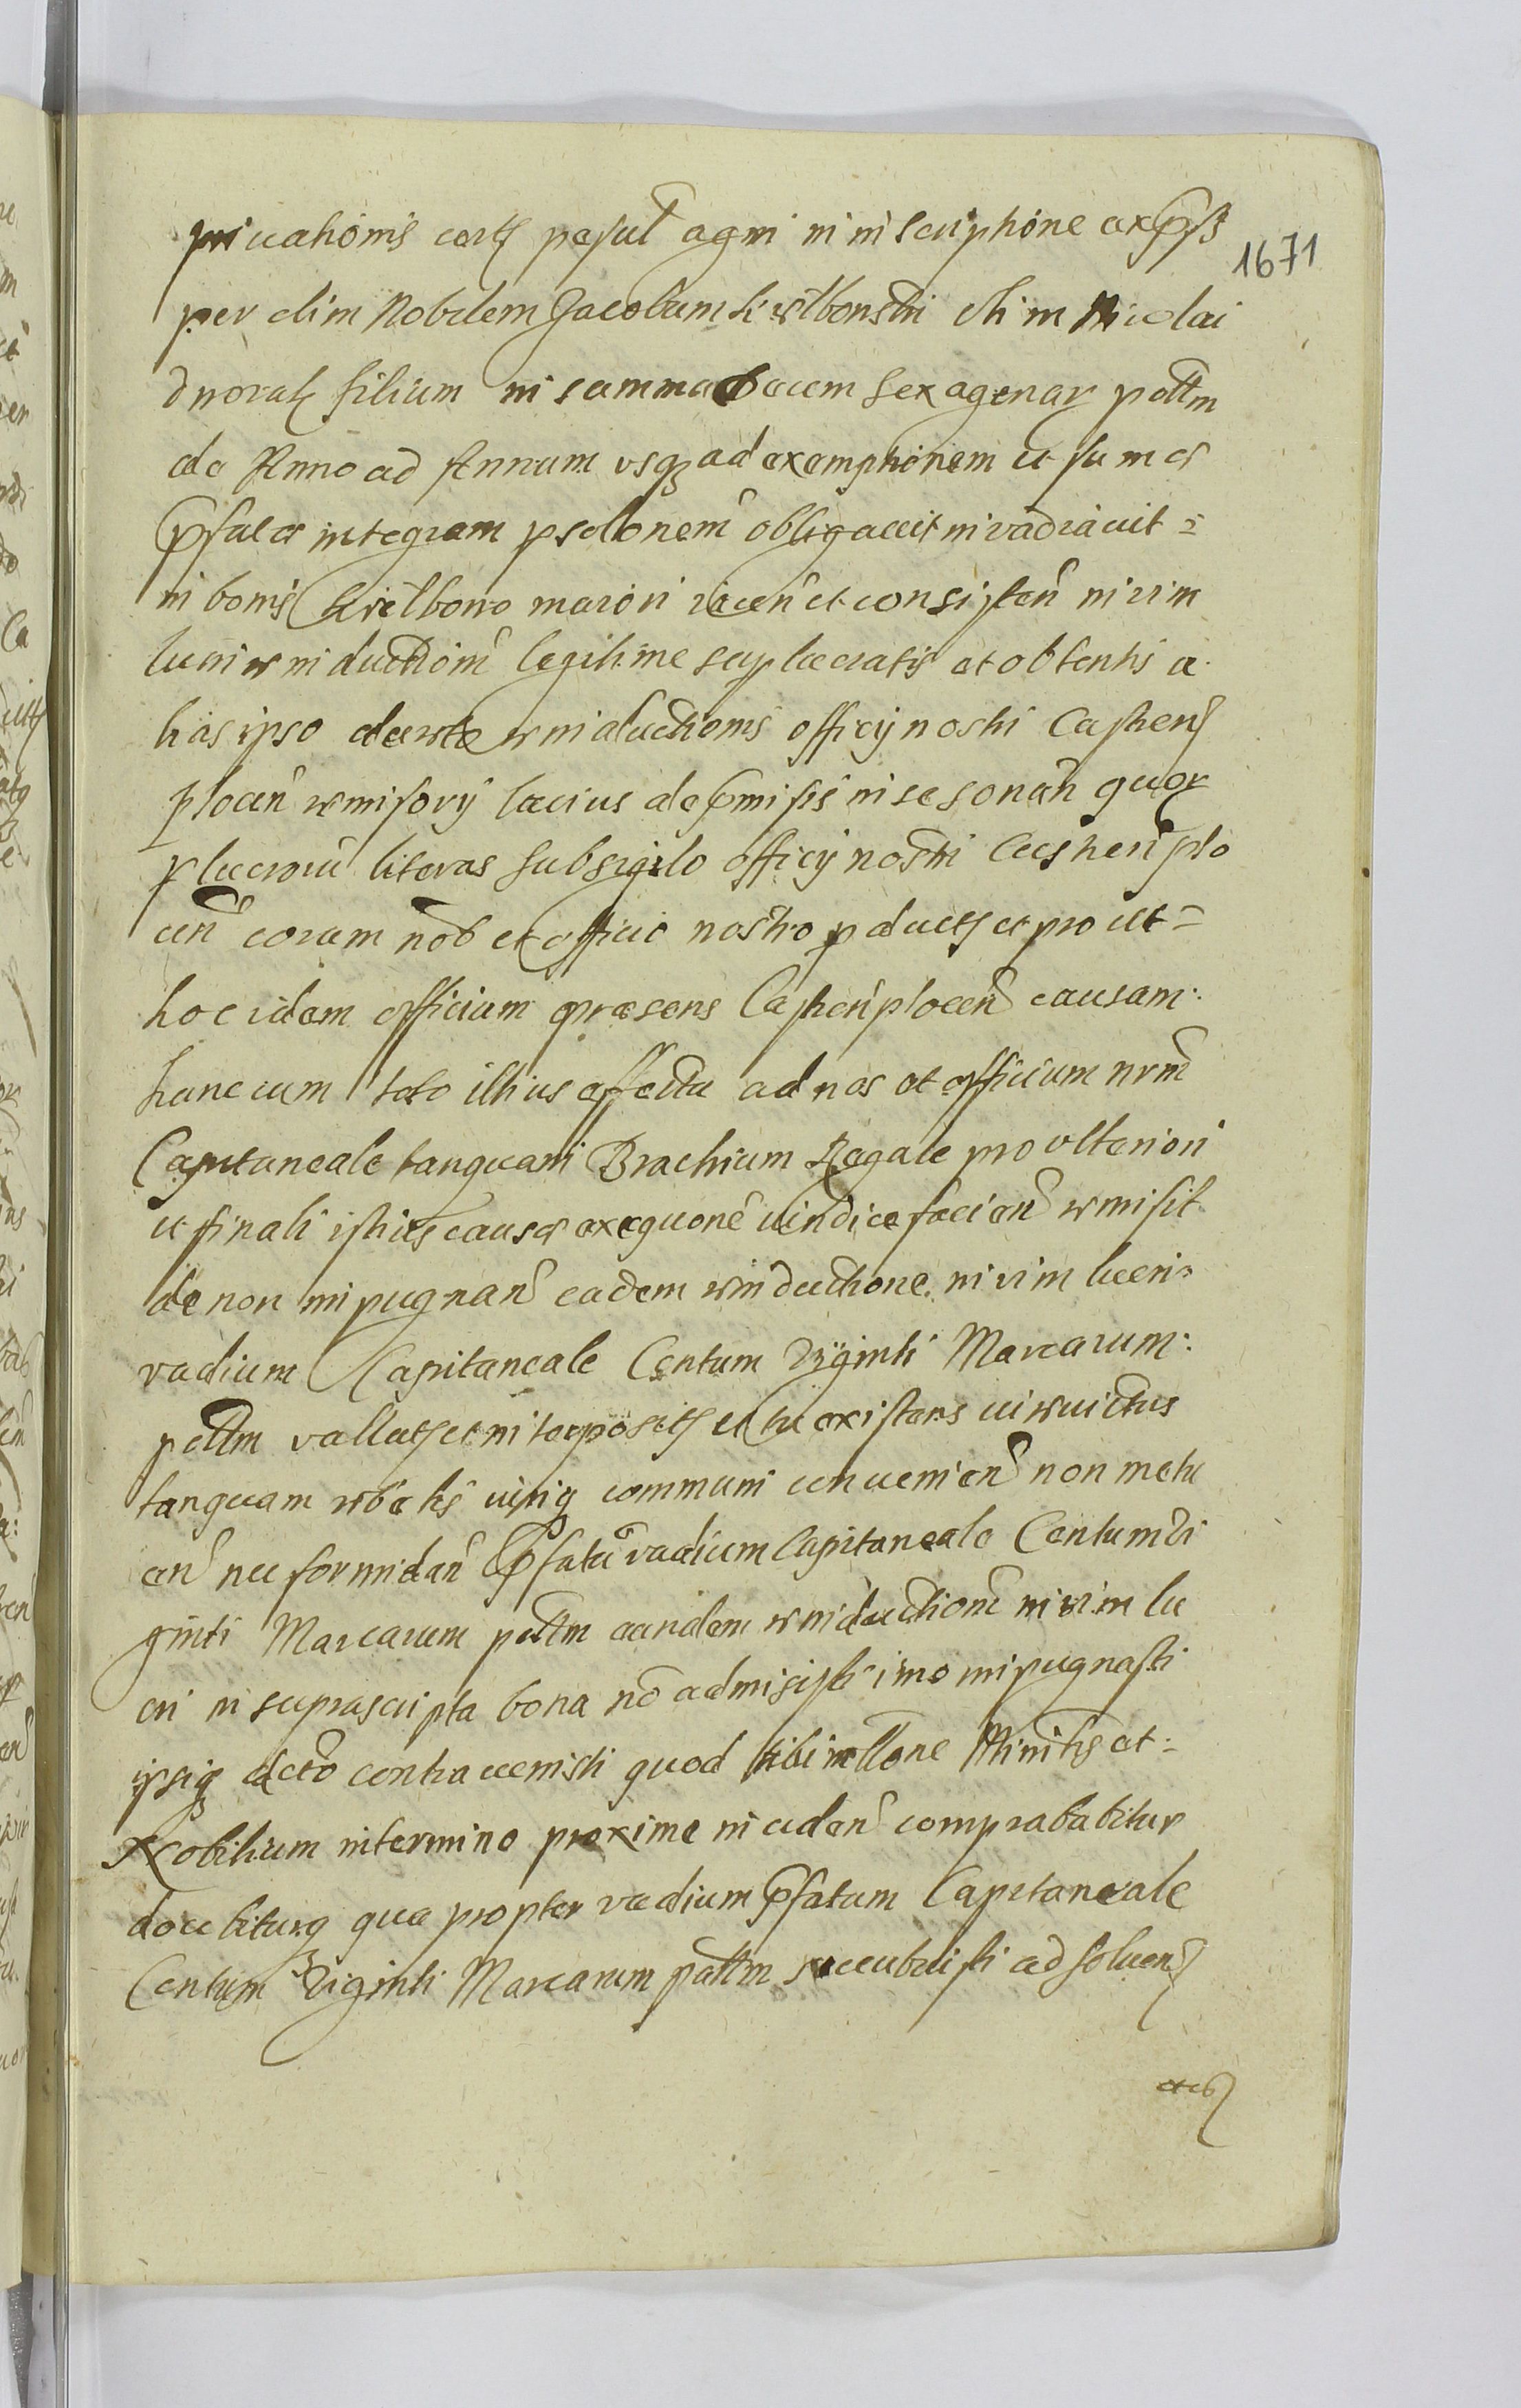 privationis certis pascul agri in inscriptione expss
1671
per olim Nobilem Jacobum Kielbonski olim Nicolai
filium in summa Decem Sexagenar pottm
de Anno ad Annum vsq ad exemptionem et summæ
pfatæ integram psolonem obligavit invadiavit =
in bonis Kielbowo maiori iacen et consisten in vim
lucri reinductiom legitime sup lucratis et obtentis a
lias ipso reinductionis officij nostri Castren
plocen remissorij lacius de pmissis in se sonan quor
p lucrorum literas sub sigilo officij nostri Castren plo
cen coram nob et officio nostro p ductis et pro ut =
hoc idem officium præsens Castren plocen causam
hanc cum toto illius effectu ad nos et officium nrm
Capitaneale tanquam Brachium Regale pro vlteriori
et finali istius causæ exequone iuridice facien remisit
de non impugnan eadem reinductione in vim lucri
vadium Capitaneale Centum Viginti Marcarum
pottm vallatis et interpositis et tu existens
tanquam rebelis iuriq communi contuenien non metu
en nec formidan pfatu vadium Capitaneale Centum Vi
ginti Marcarum pottm eandem reinductiom in vim lu
cri in suprascripta bona no admisisti imo impugnasti
ipsiq decreto contravenisti quod tibi Minitris et
Nobilium in termino proxime inciden comprobabitur
docebiturq qua propter vadium pfatum Capitaneale
Centum Viginti Marcarum pottm succubuisti ad soluen